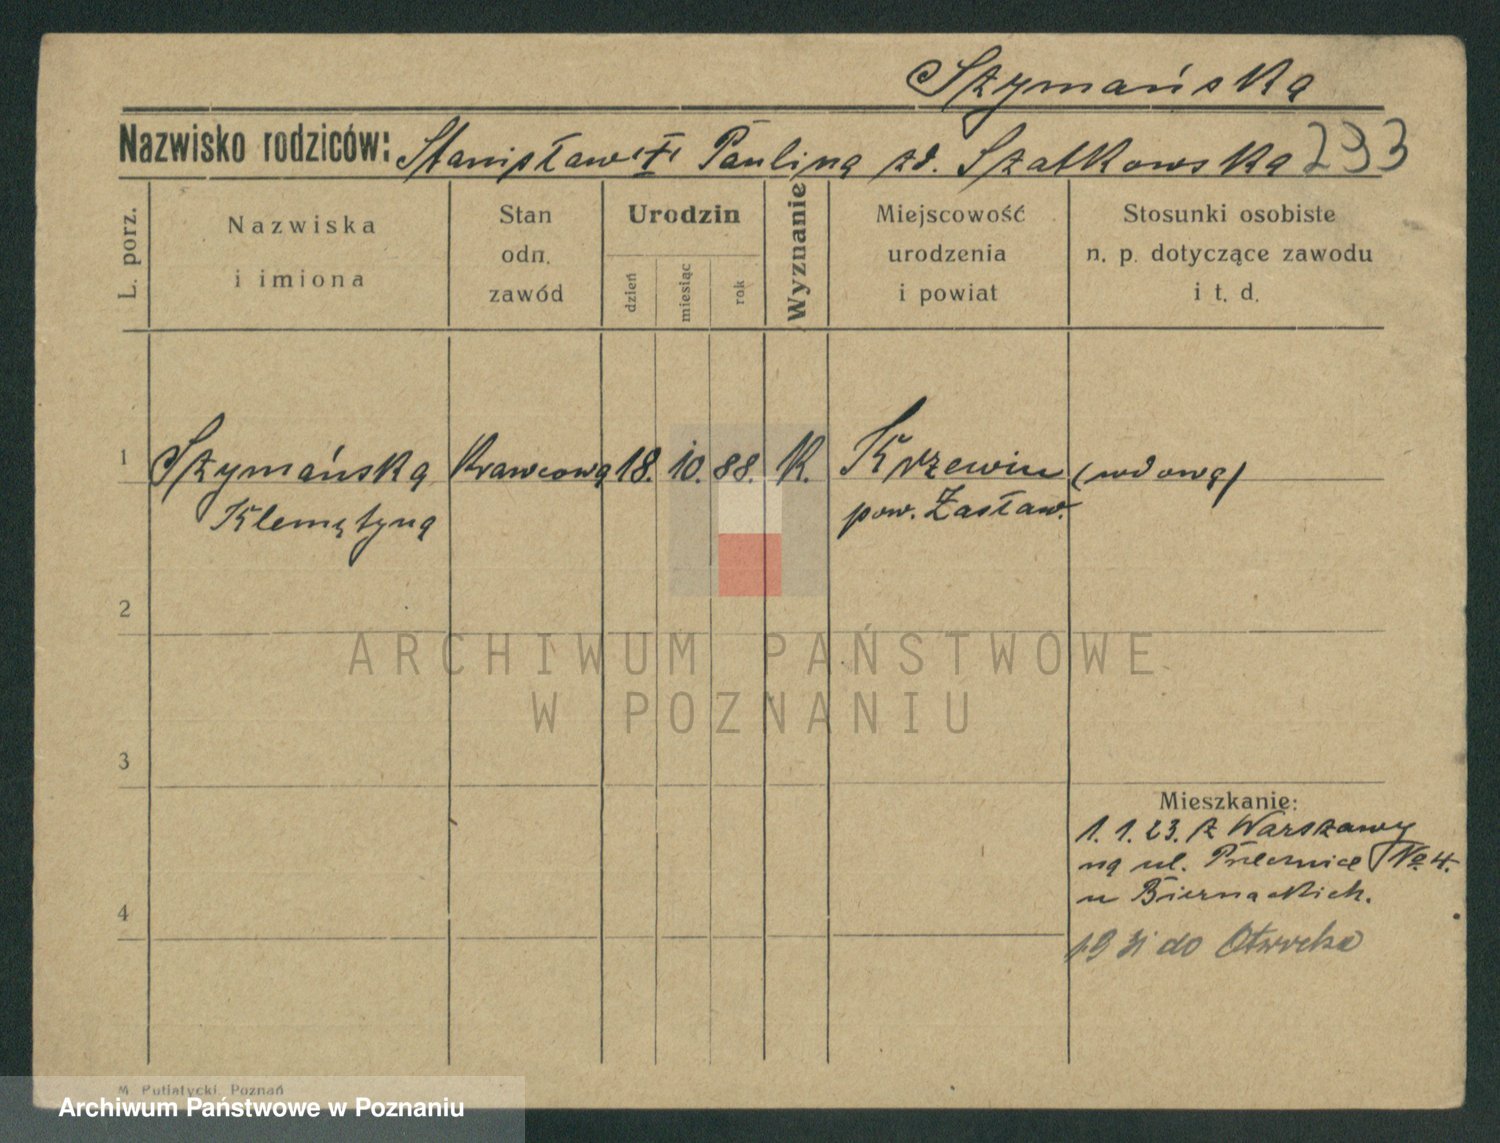 Szymańska
Nazwisko rodziców: Stanisław "†" Paulina zd. Szatkowska 293
L. porz.
Nazwiska
i imiona
Stan
odn.
zawód
Urodzin
dzień
miesiąc
rok
Wyznanie
Miejscowość
urodzenia
i powiat
Stosunki osobiste
n. p. dotyczące zawodu
i t. d.
1 Szymańska Krawcowa 18. 10. 88. K. Krzewin (wdowa)
Klemętyna pow. Zasław.
2
ARCHIWUM PAŃSTWOWE
W POZNANIU
3
Mieszkanie:
1. 1. 23. z Warszawy
na ul. No 4.
u Biernackich.
4
do Otwocka
M. Putiatycki, Poznań
Archiwum Państwowe w Poznaniu